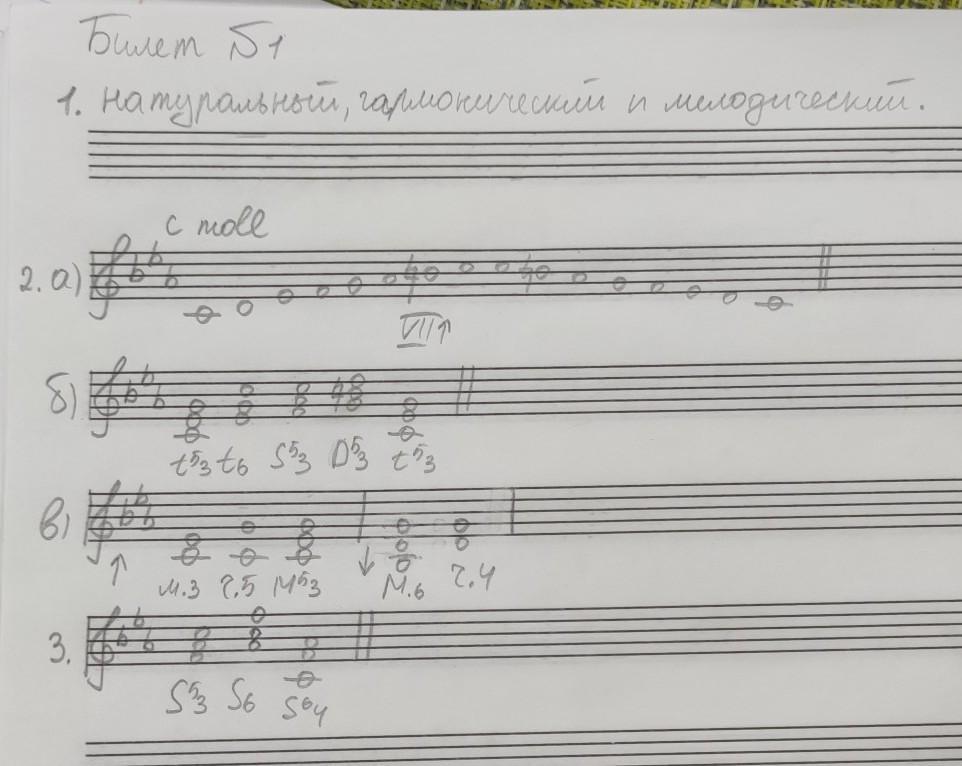 Билет №1
1. натуральный, гармонический и мелодический.
c moll
2. а)
VII↑
б)
t5/3 t6 S5/3 D5/3 t5/3
в)
↑ м.3 ч.5 М5/3 ↓ м.6 ч.4
3.
S5/3 S6 S6/4